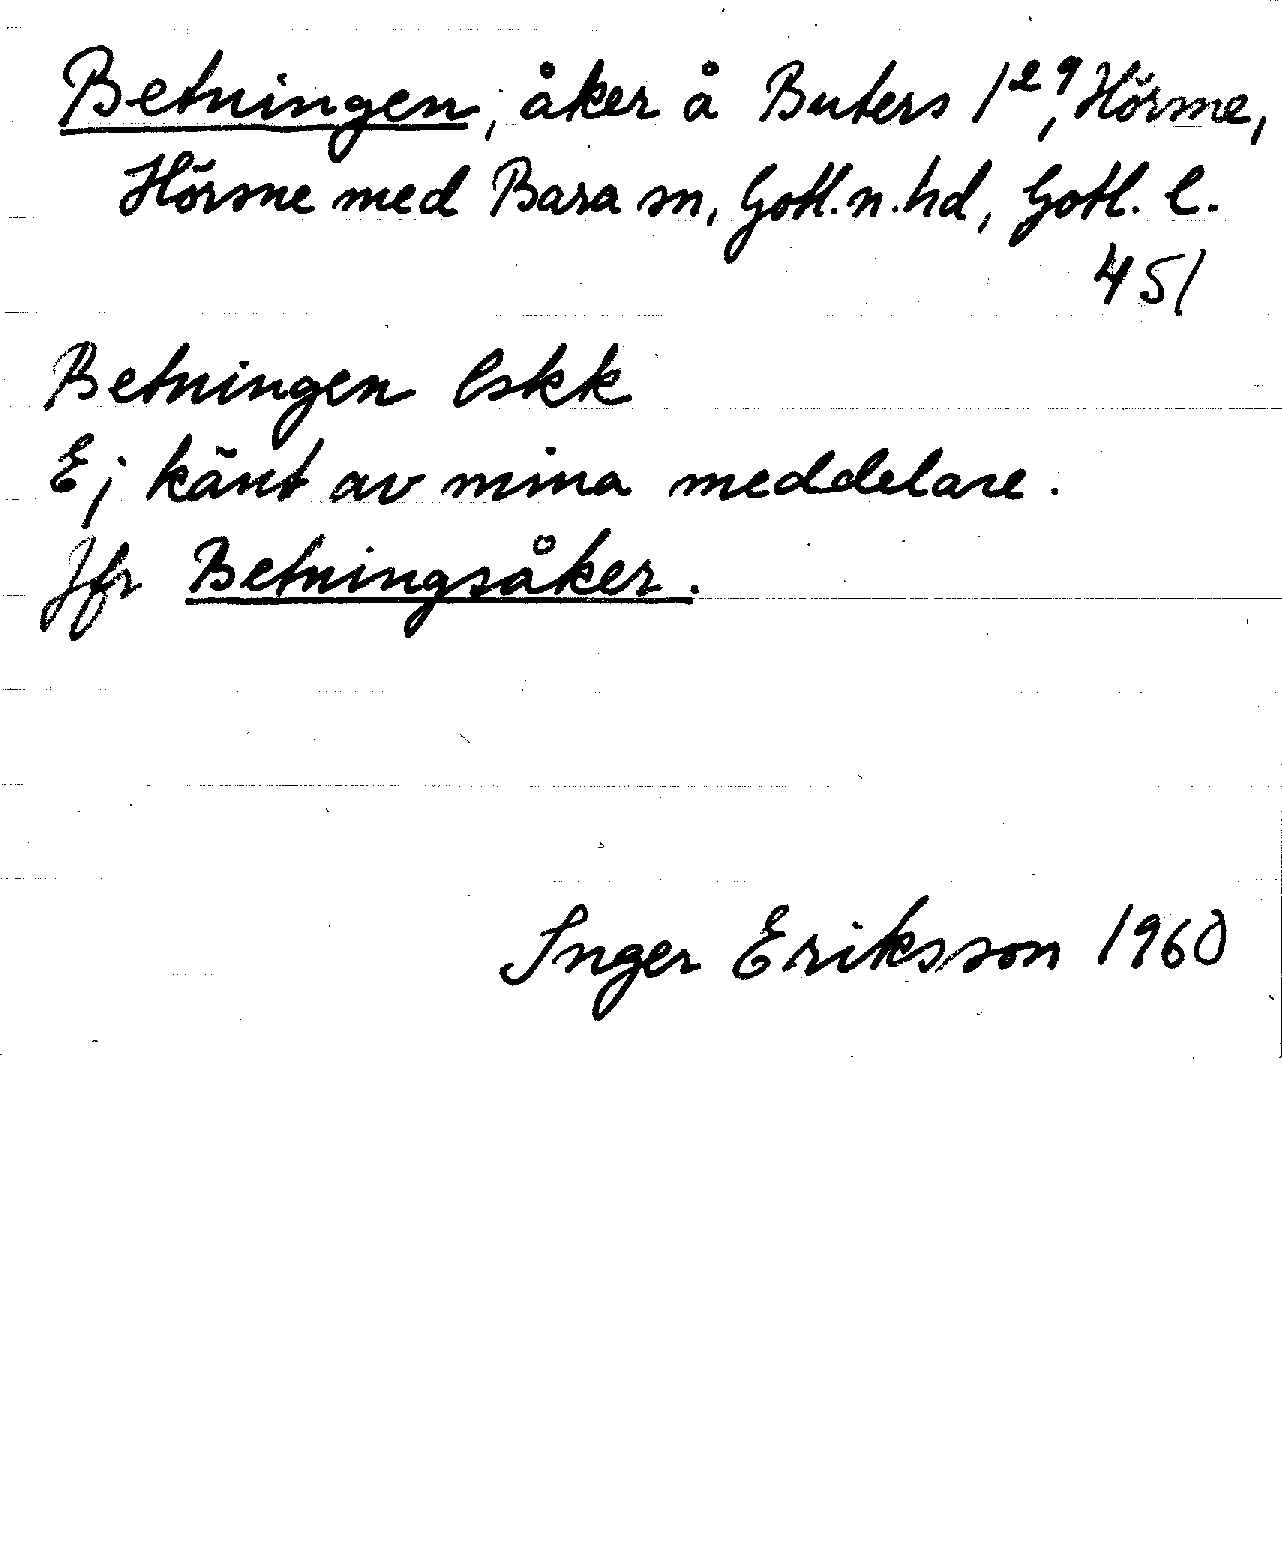 Betningen, åker å Buters 1²⁹, Hörsne,
Hörsne med Bara sn, Gotl. n. hd, Gotl. l.
451
Betningen lskk
Ej känt av mina meddelare.
Jfr Betningsåker.
Inger Eriksson 1960